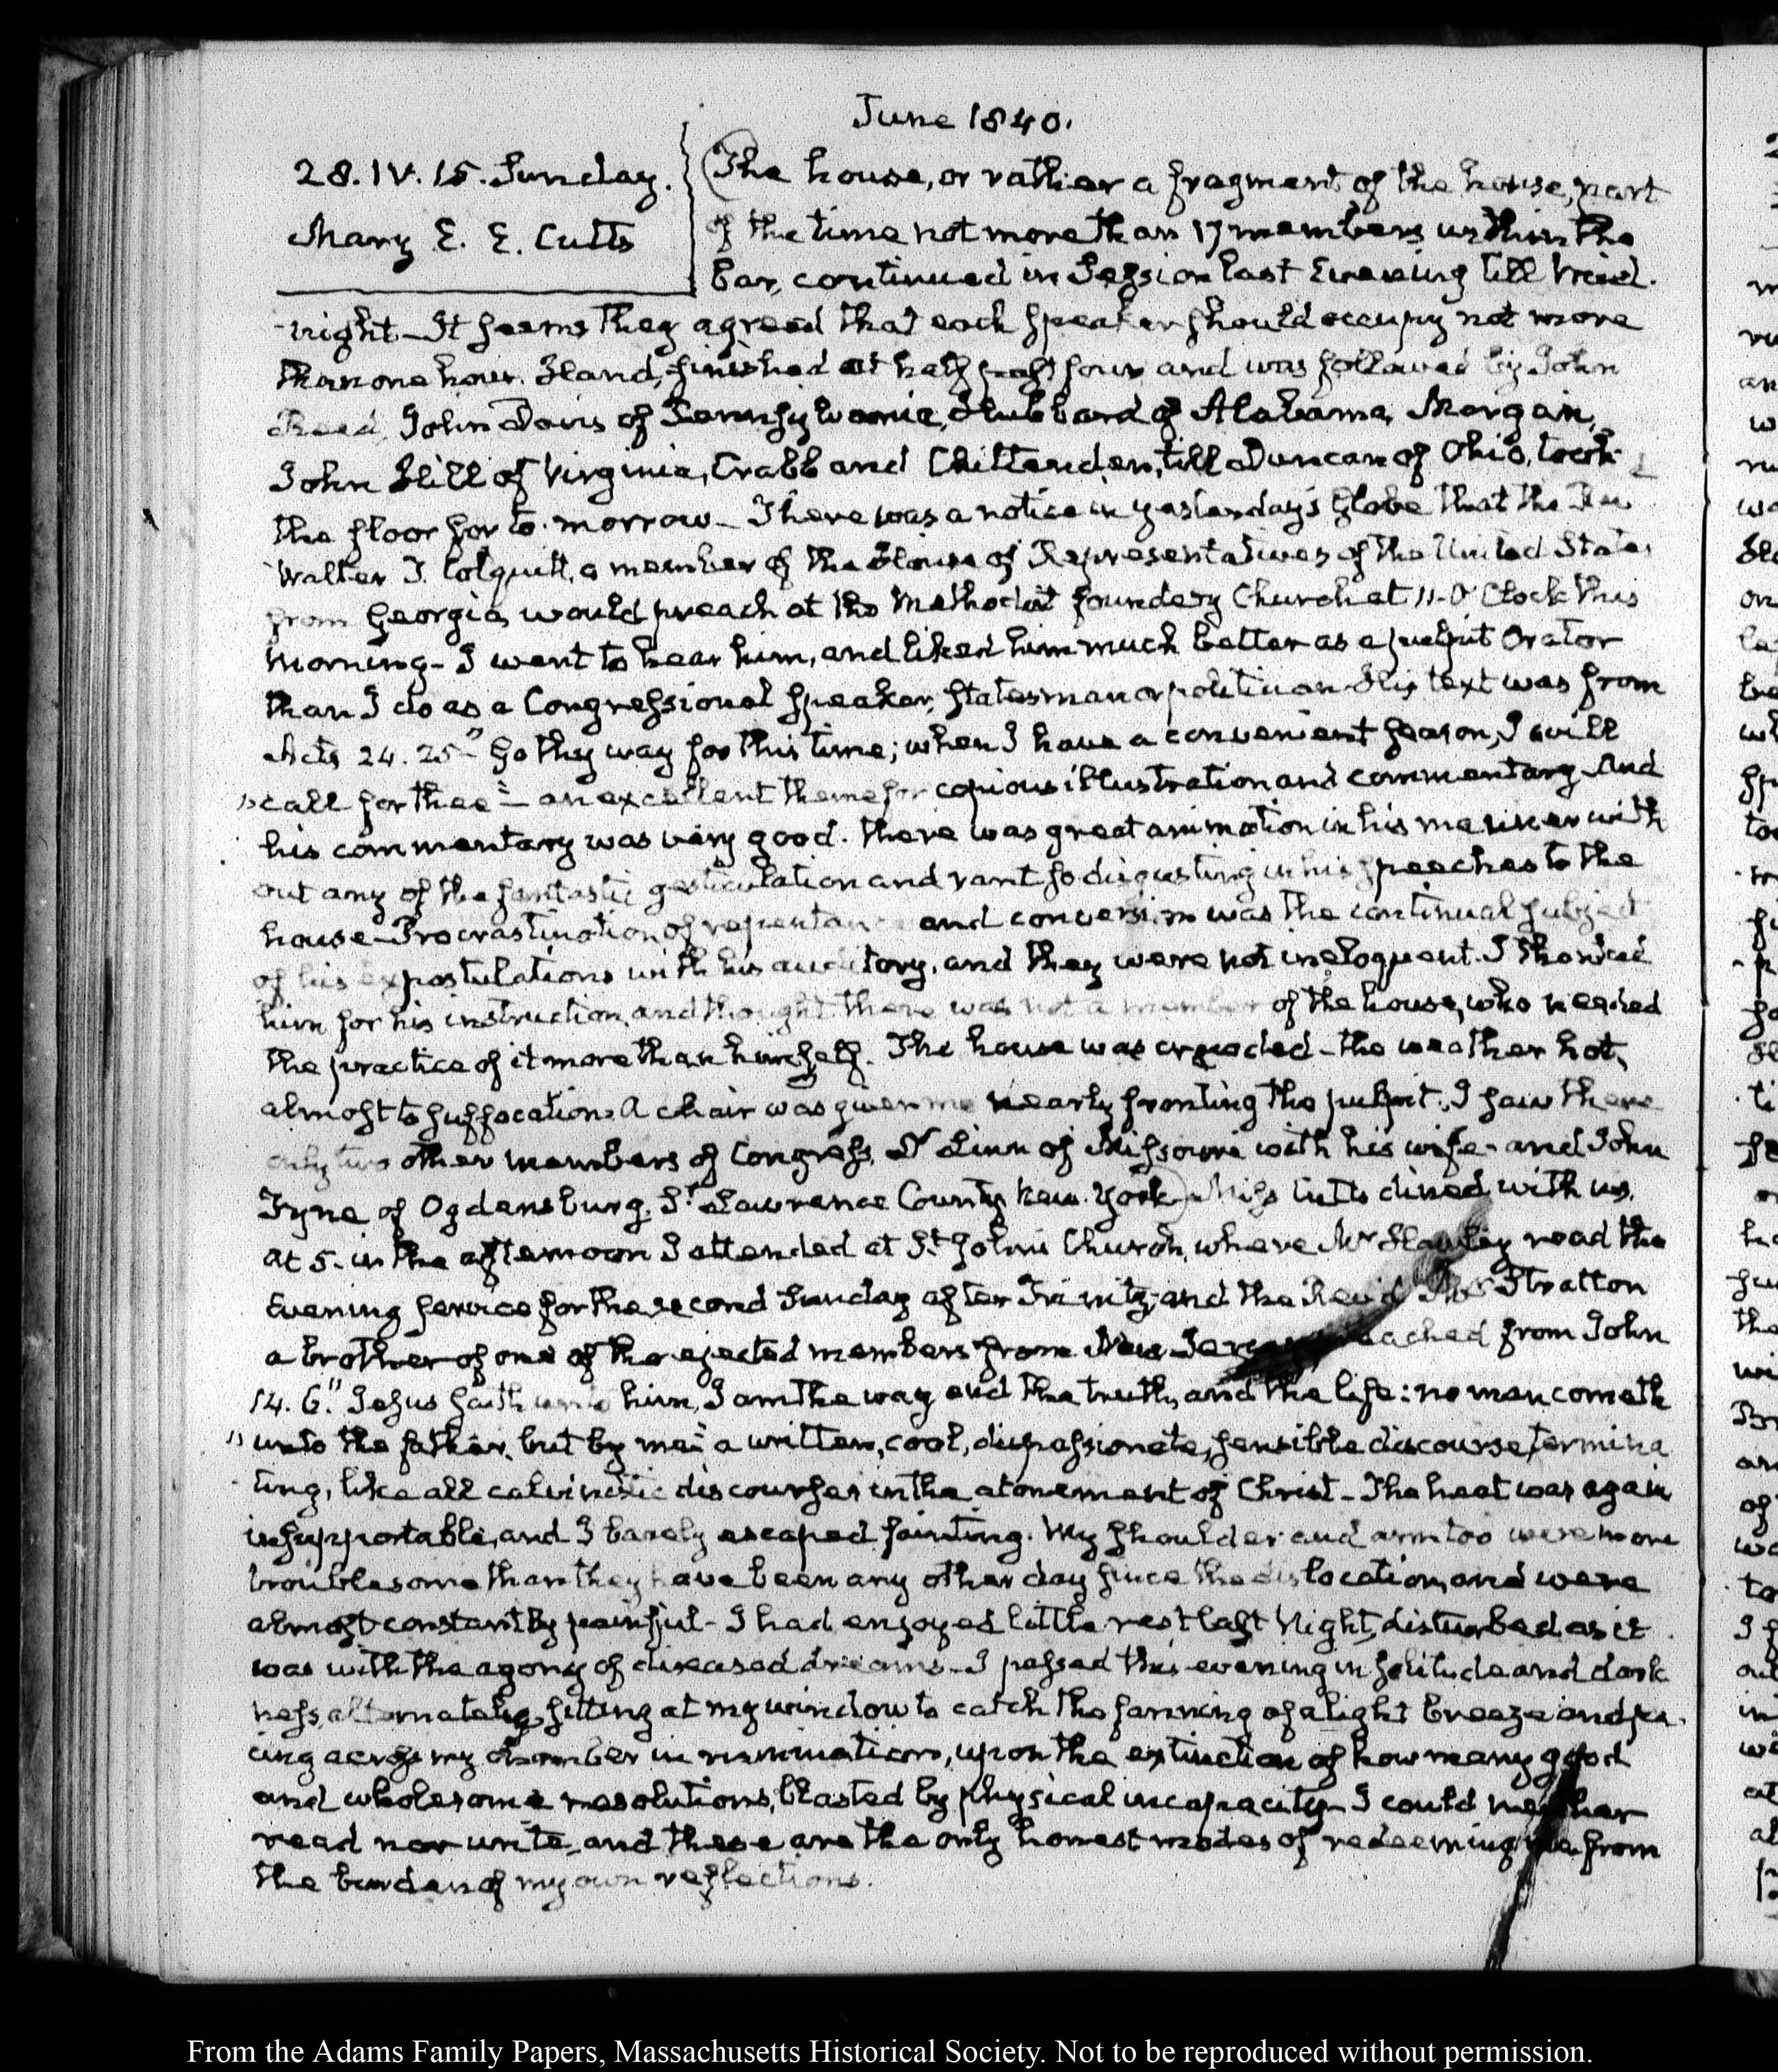 June 1840.
28. IV. 15. Sunday.
Mary E. E. Cutts
The house, or rather a fragment of the house, part
of the time not more than 17 members within the
bar, continued in Session last Evening till Mid-
-night. It seems they agreed that each Speaker should occupy not more
than one hour. Hand, finished at half past four and was followed by John
Reed, John Davis of Pennsylvania, Hubbard of Alabama, Morgan,
John Hill of Virginia, Crabb and Chittenden, till Duncan of Ohio, took
the floor for to-morrow. There was a notice in yesterday's Globe that the Rev
Walter T. Colquitt, a member of the House of Representatives of the United States
from Georgia would preach at the Methodist foundery Church at 11. O'Clock this
Morning- I went to hear him, and liked him much better as a pulpit Orator
than I do as a Congressional Speaker, Statesman or politician. His text was from
Acts 24. 25 " Go thy way for this time; when I have a convenient season, I will
"call for thee"- an excellent theme for copious illustration and commentary And
his commentary was very good. there was great animation in his manner with
out any of the fantastic gesticulation and rant so disgusting in his speeches to the
house- Procrastination of repentance and conversion was the continual subject
of his expostulations with his auditory, and they were not ineloquent. I thanked
him for his instruction, and thought there was not a member of the house, who needed
the practice of it more than himself. The house was crowded- the weather hot,
almost to suffocation. A chair was given me nearly fronting the pulpit. I saw there
only two other members of Congress, Dr Linn of Missouri with his wife- and John
Fyne of Ogdensburg, St Lawrence County New-York) Miss Cutts dined with us.
At 5. in the afternoon I attended at St John's Church, where Mr Hawley read the
Evening service for the second Sunday after Trinity, and the Revd Mr Stratton
a brother of one of the ejected members from New Jersey preached from John
14. 6." Jesus saith unto him, I am the way and the truth, and the life: no man cometh
"unto the father, but by me" a written, cool, dispassionate, sensible discourse, termina
ting, like all calvinistic discourses in the atonement of Christ- The heat was again
insupportable, and I barely escaped fainting. My shoulder and arm too were more
troublesome than they have been any other day since the dislocation, and were
almost constantly painful- I had enjoyed little rest last Night, disturbed as it
was with the agony of diseased dreams- I passed this evening in solitude and dark
ness, alternately sitting at my window to catch the fanning of a light breeze and pa-
cing across my chamber in rumination, upon the extinction of how many good
and wholesome resolutions, blasted by physical incapacity- I could neither
read nor write, and these are the only honest modes of redeeming me from
the burden of my own reflections.
From the Adams Family Papers, Massachusetts Historical Society. Not to be reproduced without permission.